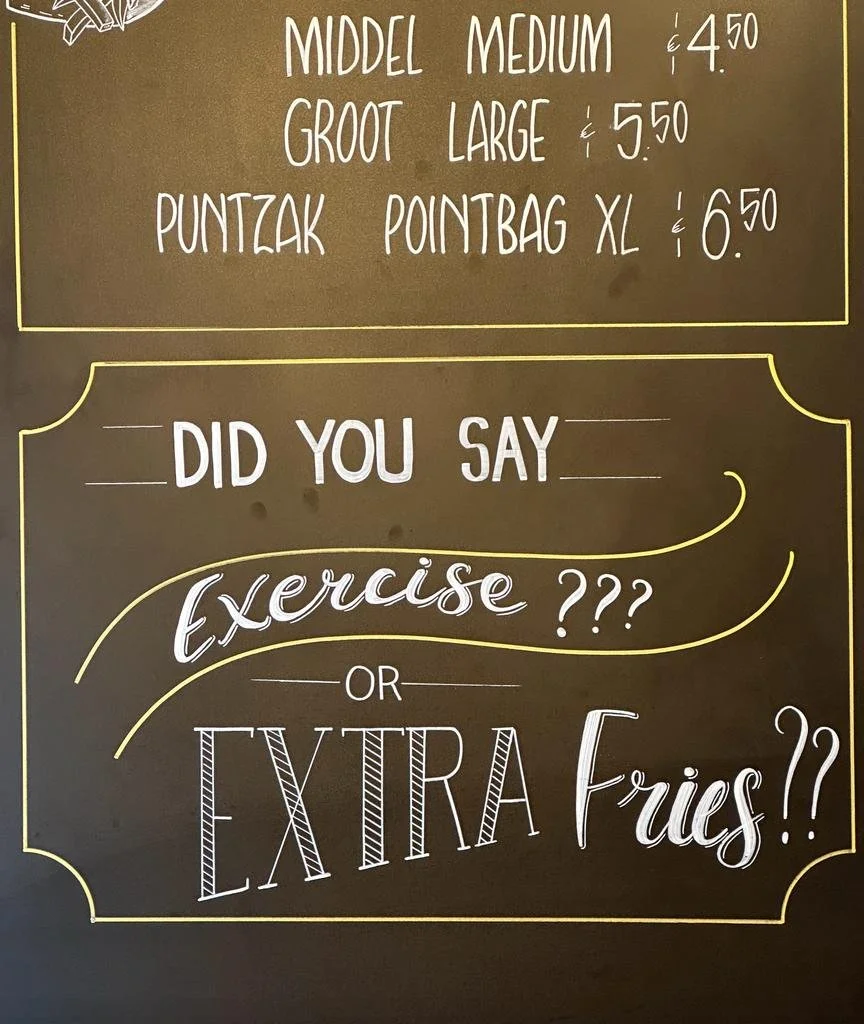 MIDDEL MEDIUM € 4.50
GROOT LARGE € 5.50
PUNTZAK POINTBAG XL € 6.50
DID YOU SAY
Exercise ???
OR
EXTRA Fries??